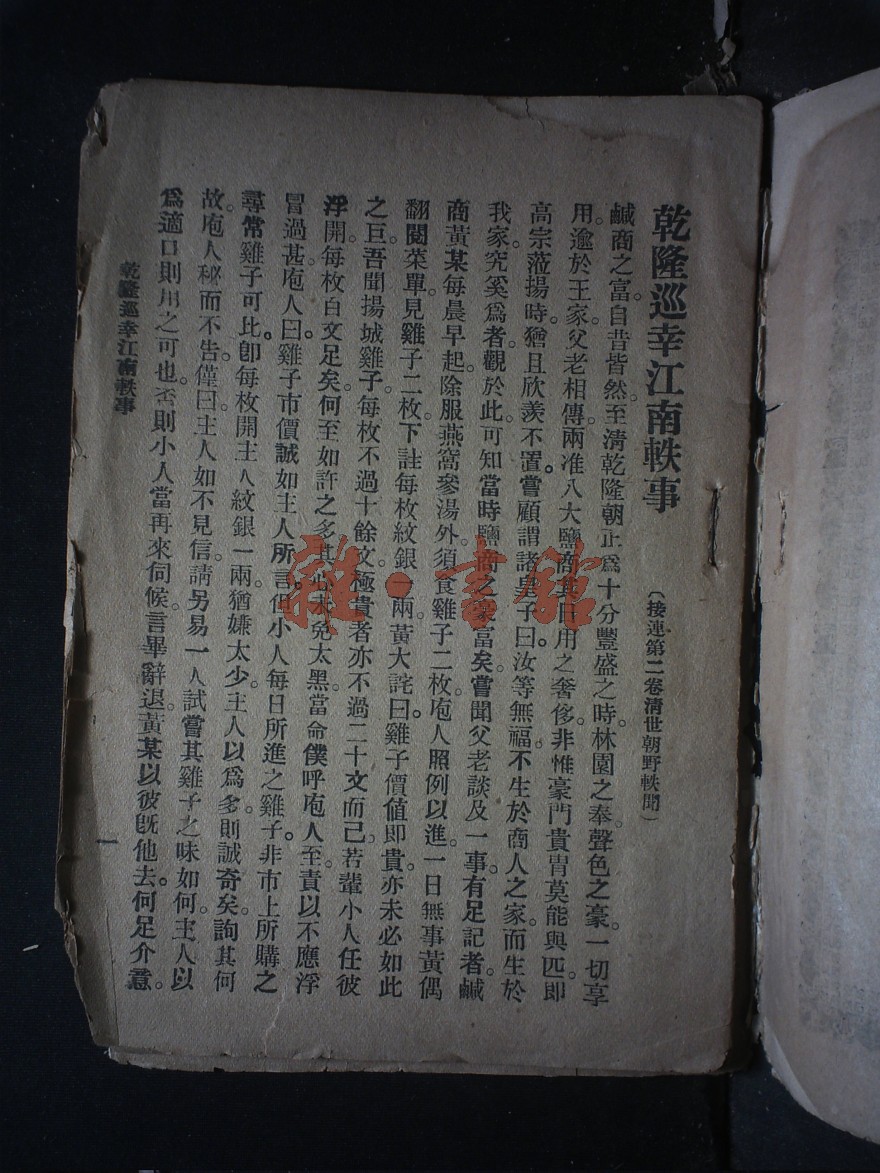 乾隆巡幸江南軼事
(接連第二卷清世朝野軼聞)
鹹商之富。自昔皆然。至淸乾隆朝止爲十分豐盛之時。林園之奉。聲色之豪。一切享
用。逾於王家。父老相傳。兩淮八大鹽商。其日用之奢侈。非惟豪門貴胄莫能與匹。即
高宗蒞揚時。猶且欣羨不置。嘗顧謂諸皇子曰。汝等無福。不生於商人之家。而生於
我家。究奚爲者。觀於此。可知當時鹽商之豪富矣。嘗聞父老談及一事。有足記者。鹹
商黃某。每晨早起。除服燕窩參湯外。須食雞子二枚。庖人照例以進。一日無事。黃偶
翻閱菜單。見雞子二枚。下註每枚紋銀一兩。黃大詫曰。雞子價值即貴。亦未必如此
之巨。吾聞揚城雞子。每枚不過十餘文。極貴者亦不過二十文而已。若輩小人。任彼
浮開。每枚百文足矣。何至如許之多。其心未免太黑。當命僕呼庖人至。責以不應浮
冒過甚。庖人曰。雞子市價。誠如主人所言。但小人每日所進之雞子。非市上所購之
尋常雞子可比。卽每枚開主人紋銀一兩。猶嫌太少。主人以爲多。則誠奇矣。詢其何
故。庖人秘而不告。僅曰。主人如不見信。請另易一人。試嘗其雞子之味如何。主人以
爲適口則用之可也。否則小人當再來伺候。言畢辭退。黃某以彼旣他去。何足介意。
乾隆巡幸江南軼事
一
雜·書館